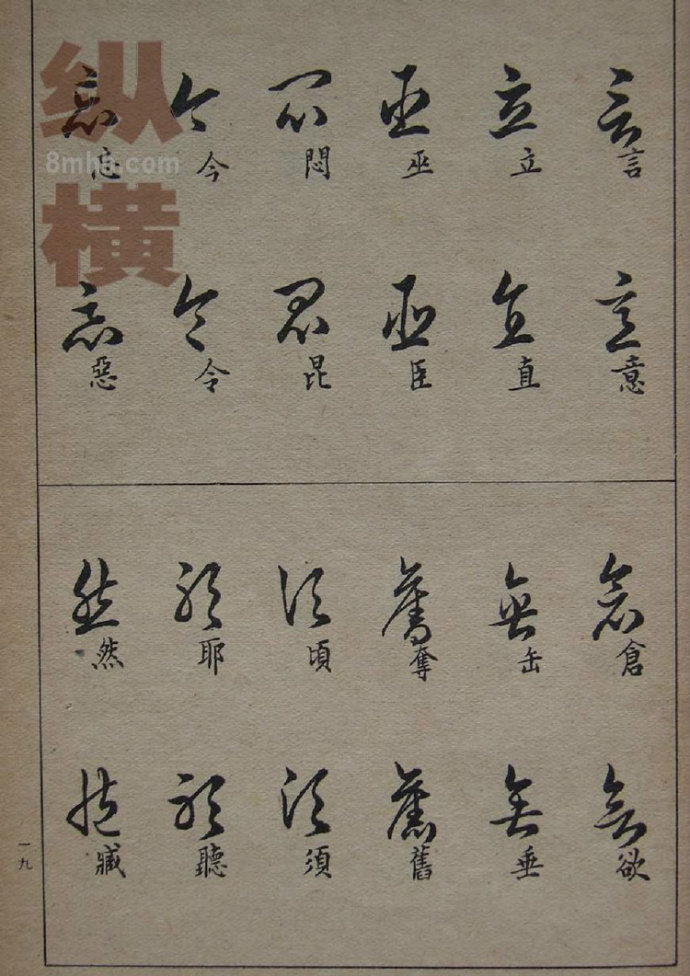 言
意
立
直
巫
臣
悶
昆
今
令
惡
倉
欲
缶
垂
奪
舊
頃
須
耶
聽
然
臧
一九
纵横